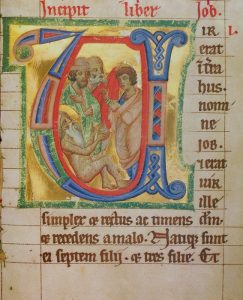 Incipit liber Job.
IR I.
erat
ī t̄ra
hus.
nomi
ne
Job.
⁊ erat
uir
ille
simplex & rectus ac timens dm̄
& recedens a malo. Natiq; sunt
ei septem filij & tres filie. Et